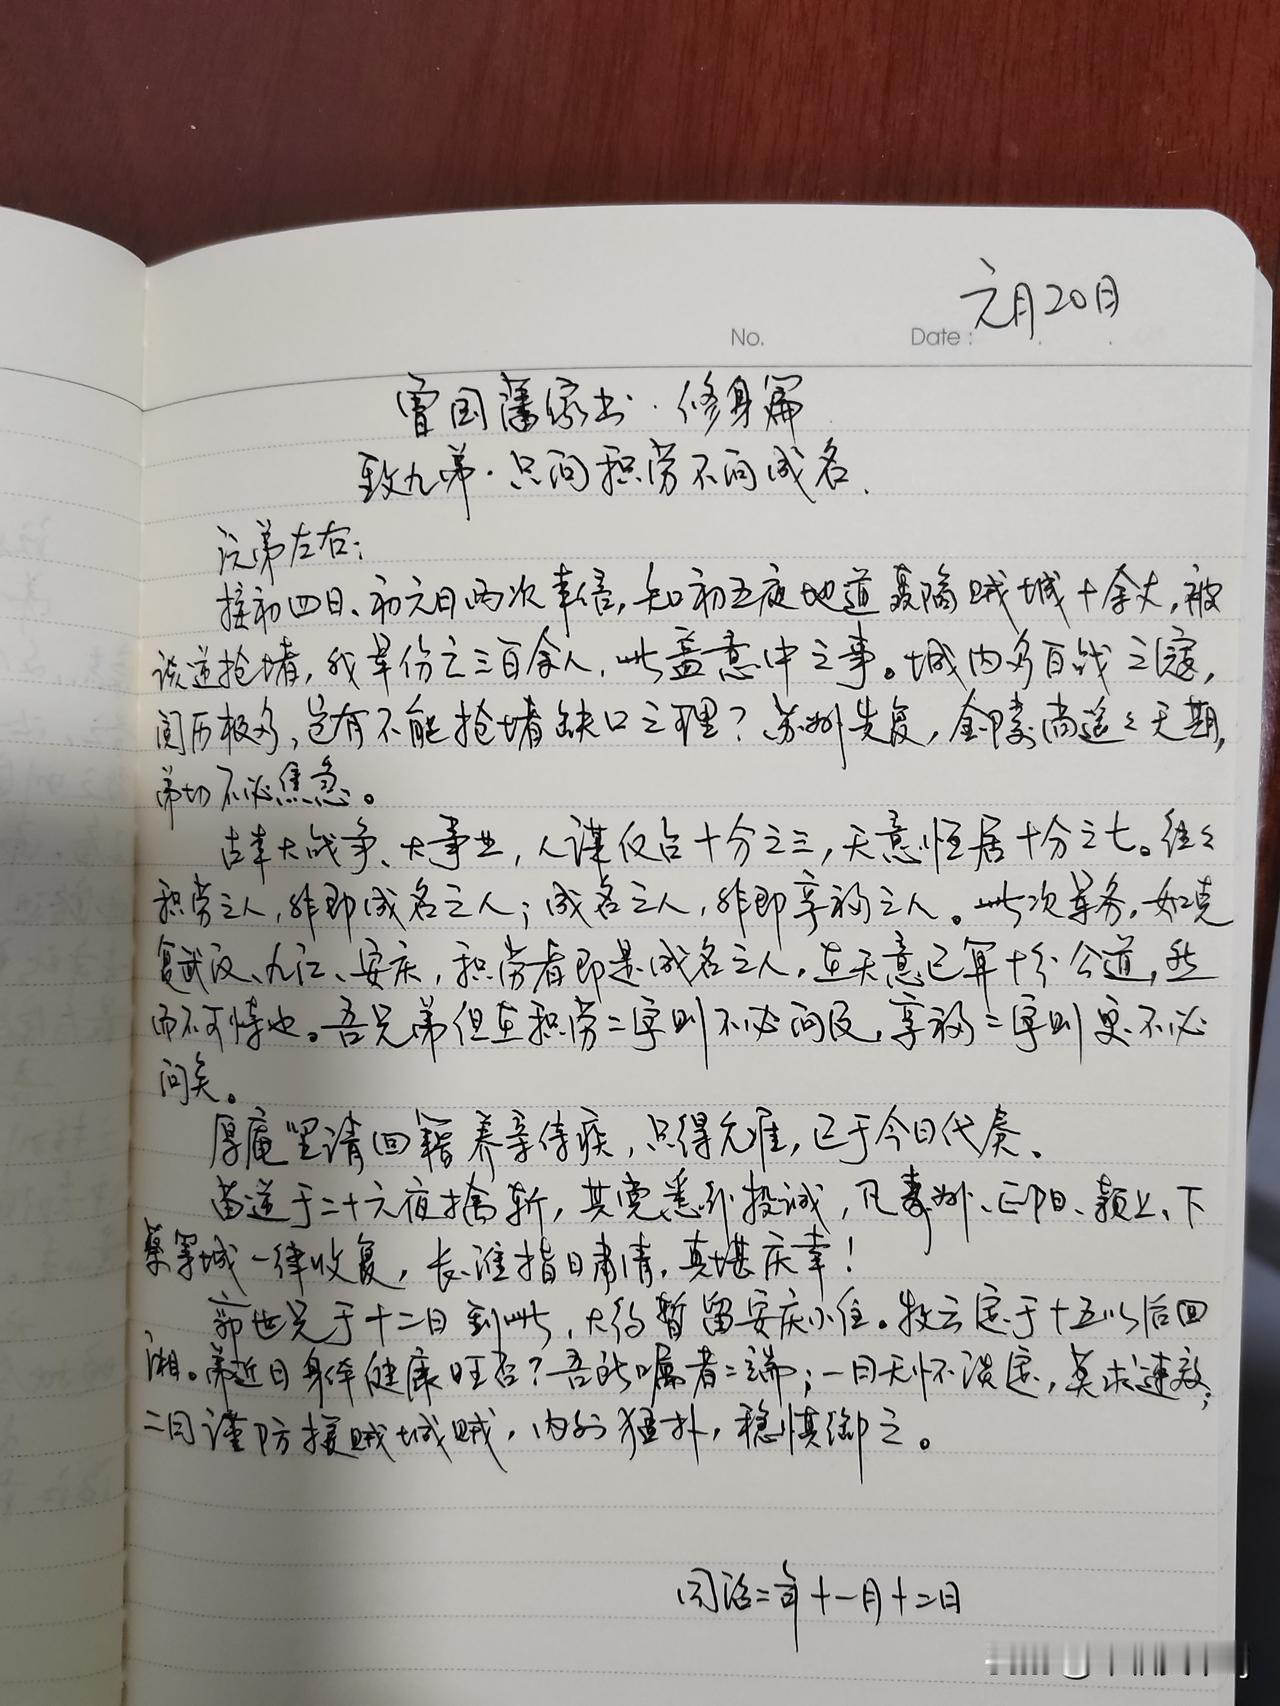 元月20日
No. Date:
曾国藩家书·修身篇
致九弟·只问积劳不问成名.
沅弟左右:
接初四日、初六日两次来信,知初五夜地道轰陷贼城十余丈,被
该逆抢堵,我军伤亡三百余人,此盖意中之事。城内多百战之寇,
阅历极多,岂有不能抢堵缺口之理?苏州先复,金陵尚遥遥无期,
弟切不必焦急。
古来大战争、大事业,人谋仅占十分之三,天意恒居十分之七。往往
积劳之人,非即成名之人;成名之人,非即享福之人。此次军务,如克
复武汉、九江、安庆,积劳者即是成名之人,在天意已算十分公道,然
而不可恃也。吾兄弟但在积劳二字则不必问及,享福二字则更不必
问矣。
厚庵坚请回籍养亲侍疾,只得允准,已于今日代奏。
苗逆于二十六夜擒斩,其党悉行投诚,凡寿州、正阳、颍上、下
蔡等城一律收复,长淮指日肃清,真堪庆幸!
郭世兄于十二日到此,大约暂留安庆小住。牧云定于十五以后回
湘。弟近日身体健康旺否?吾所嘱者二端;一曰天怀淡定,莫求速效;
二曰谨防援贼城贼,内外猛扑,稳慎御之。
同治二年十一月十二日